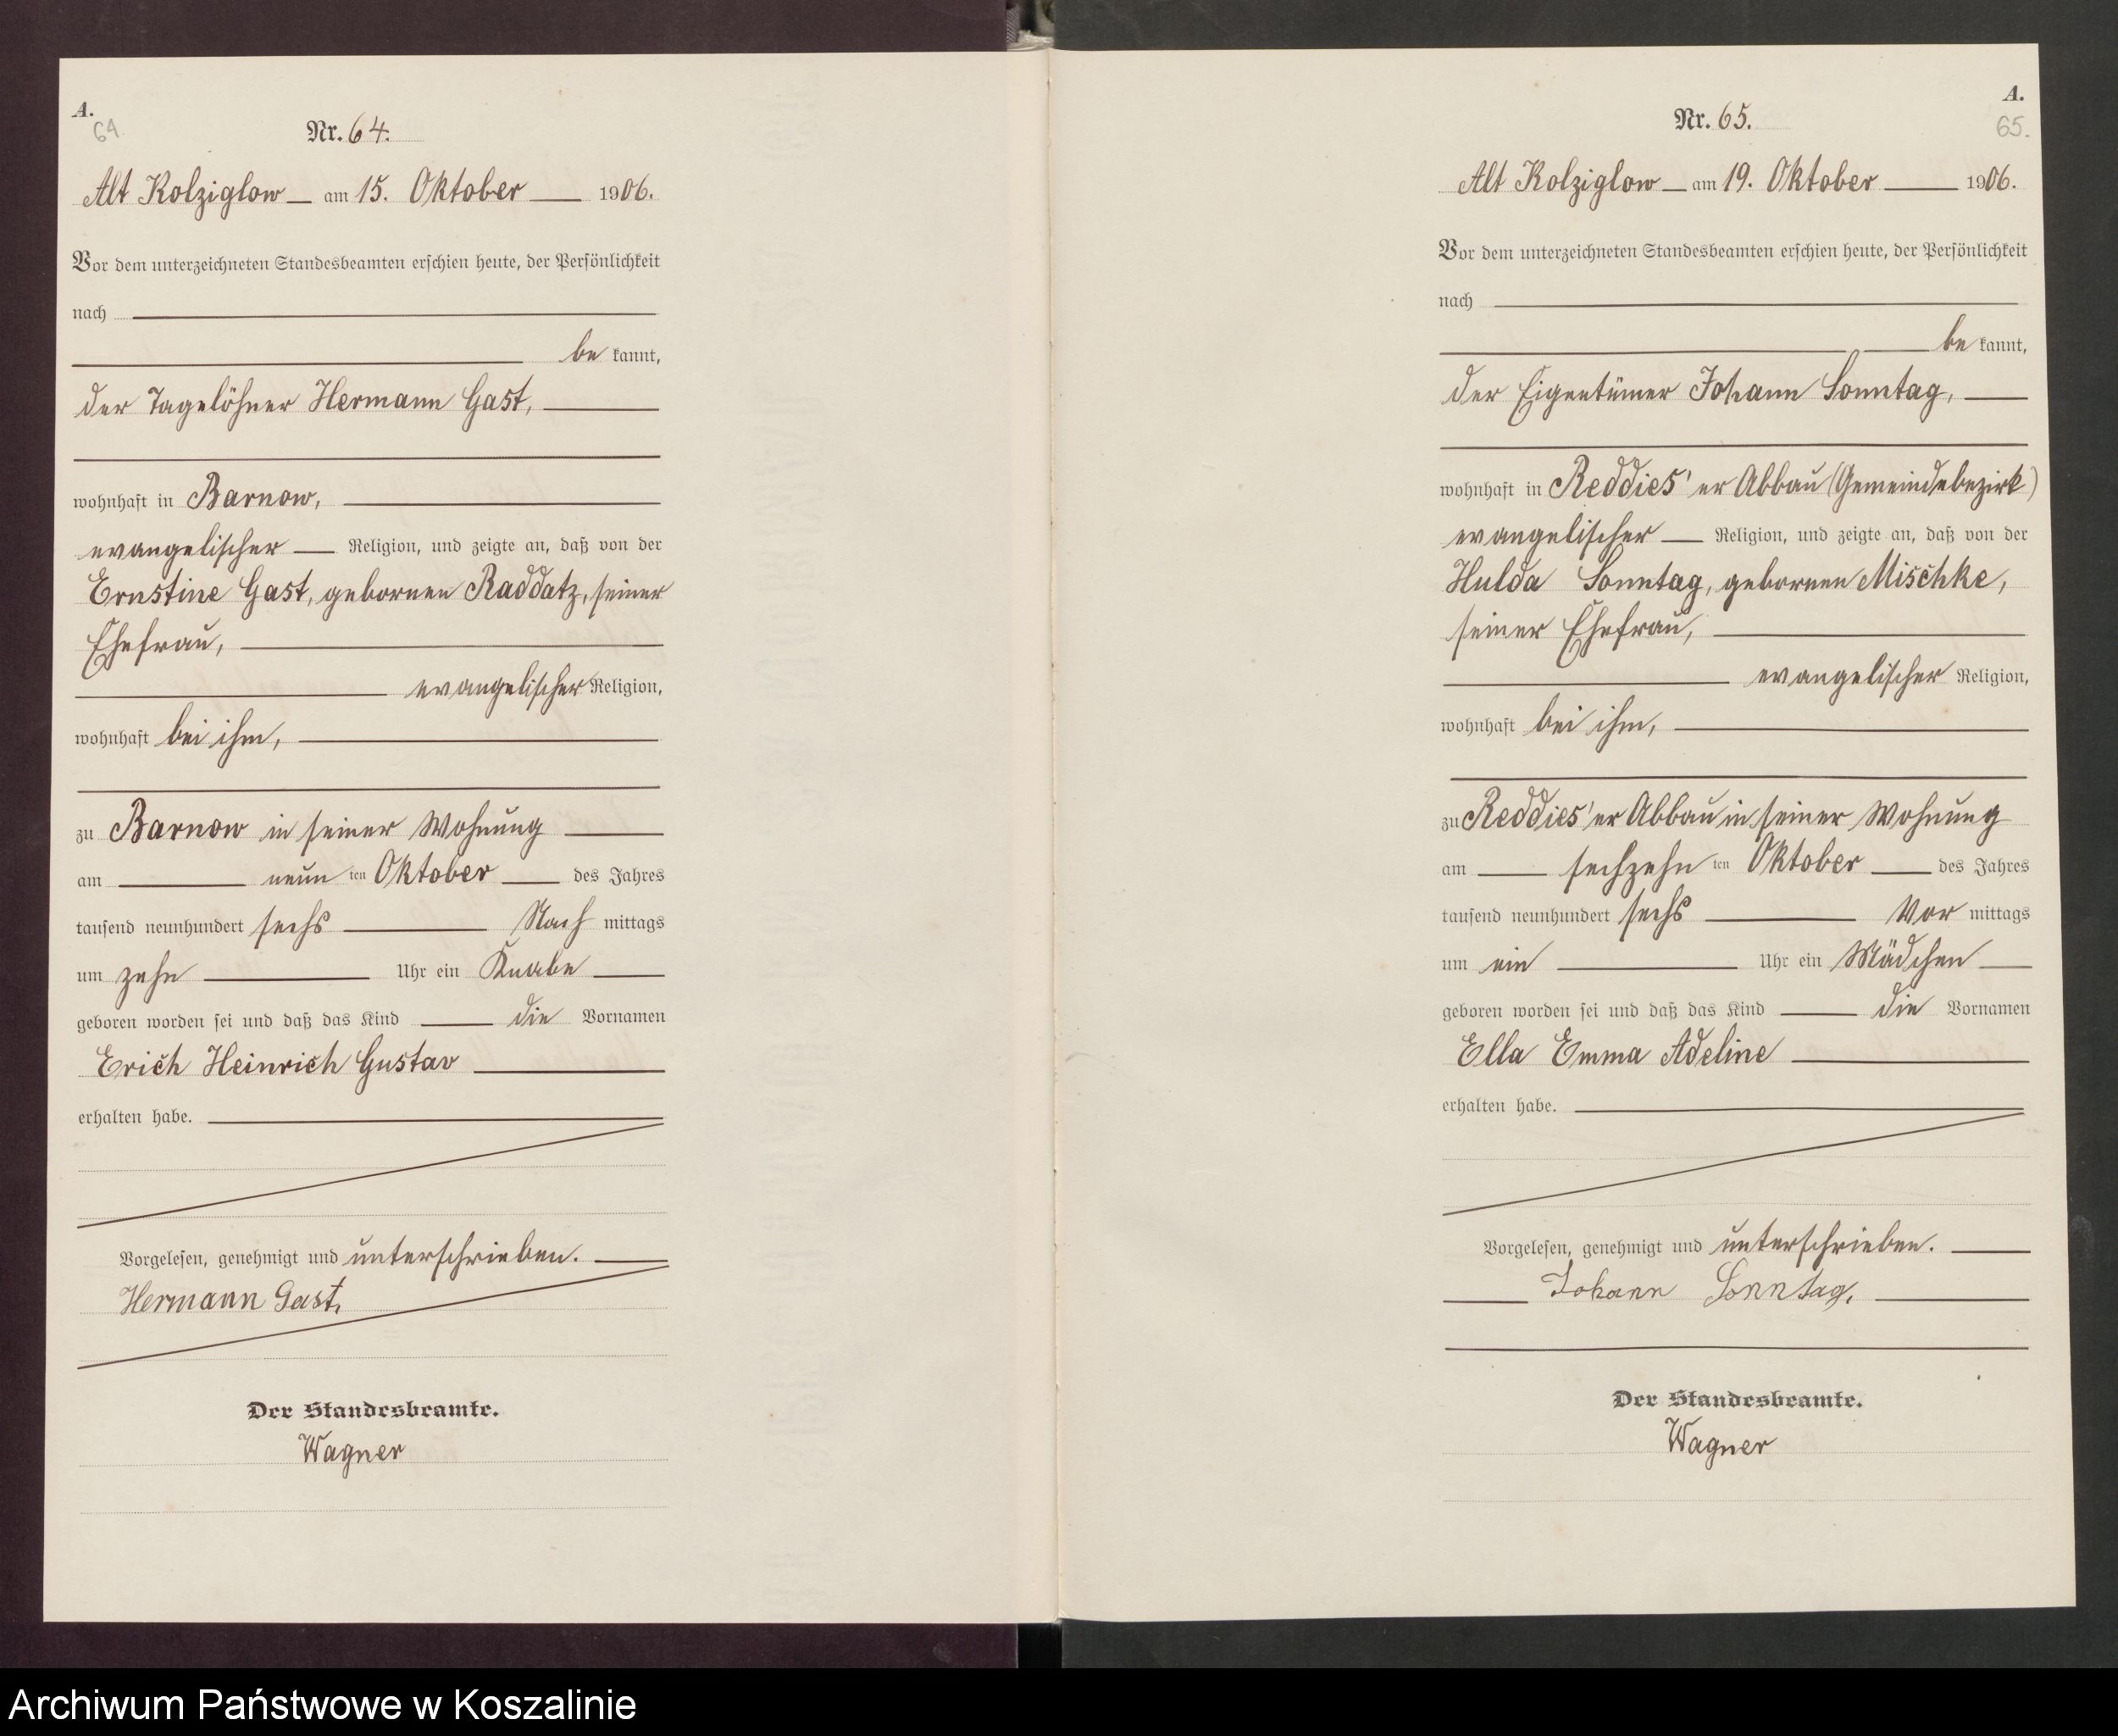 A.
64
Nr. 64.
Alt Kolziglow am 15. Oktober 1906.
Vor dem unterzeichneten Standesbeamten erschien heute, der Persönlichkeit
nach
be kannt,
der Tagelöhner Hermann Gast,
wohnhaft in Barnow,
evangelischer Religion, und zeigte an, daß von der
Ernstine Gast, gebornen Raddatz, seiner
Ehefrau,
evangelischer Religion,
wohnhaft bei ihm,
zu Barnow in seiner Wohnung
am neun ten Oktober des Jahres
tausend neunhundert sechs Nach mittags
um zehn Uhr ein Knabe
geboren worden sei und daß das Kind die Vornamen
Erich Heinrich Gustav
erhalten habe.
Vorgelesen, genehmigt und unterschrieben.
Hermann Gast.
Der Standesbeamte.
Wagner
A.
65.
Nr. 65.
Alt Kolziglow am 19. Oktober 1906.
Vor dem unterzeichneten Standesbeamten erschien heute, der Persönlichkeit
nach
be kannt,
der Eigentümer Johann Sonntag,
wohnhaft in Reddies'er Abbau (Gemeindebezirk)
evangelischer Religion, und zeigte an, daß von der
Hulda Sonntag, gebornen Mischke,
seiner Ehefrau,
evangelischer Religion,
wohnhaft bei ihm,
zu Reddies'er Abbau in seiner Wohnung
am sechzehn ten Oktober des Jahres
tausend neunhundert sechs Vor mittags
um ein Uhr ein Mädchen
geboren worden sei und daß das Kind die Vornamen
Ella Emma Adeline
erhalten habe.
Vorgelesen, genehmigt und unterschrieben.
Johann Sonntag.
Der Standesbeamte.
Wagner
Archiwum Państwowe w Koszalinie